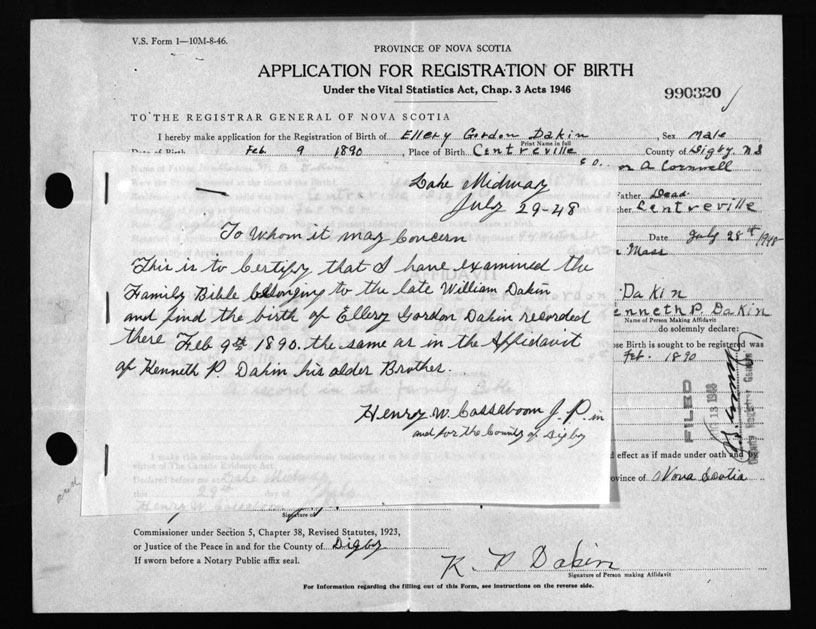 V.S. Form 1—10M-8-46.
PROVINCE OF NOVA SCOTIA
APPLICATION FOR REGISTRATION OF BIRTH
Under the Vital Statistics Act, Chap. 3 Acts 1946
990320
TO THE REGISTRAR GENERAL OF NOVA SCOTIA
I hereby make application for the Registration of Birth of Ellery Gordon Dakin, Sex Male
Print Name in full
Date of Birth Feb 9 1890, Place of Birth Centreville County of Digby. N S
A Cornwell
Father Dead.
Centreville
Date July 28th 1948
Mass
Lake Midway
July 29-48
To Whom it may Concern
This is to Certify that I have examined the
Family Bible belonging to the late William Dakin
and find the birth of Ellery Gordon Dakin recorded
there Feb 9th 1890. the same as in the Affidavit
of Kenneth P. Dakin his older Brother.
Henry W. Cassaboom J. P. in
and for the County of Digby
Dakin
Kenneth P. Dakin
Name of Person Making Affidavit
do solemnly declare:
Birth is sought to be registered was
Feb. 1890
FILED
A record in the family Bible
effect as if made under oath and by
Province of Nova Scotia
Declared before me at Lake Midway
this 29th day of July
Henry W Cassaboom
Signature of
Commissioner under Section 5, Chapter 38, Revised Statutes, 1923,
or Justice of the Peace in and for the County of Digby
If sworn before a Notary Public affix seal.
K P Dakin
Signature of Person making Affidavit
For Information regarding the filling out of this Form, see instructions on the reverse side.